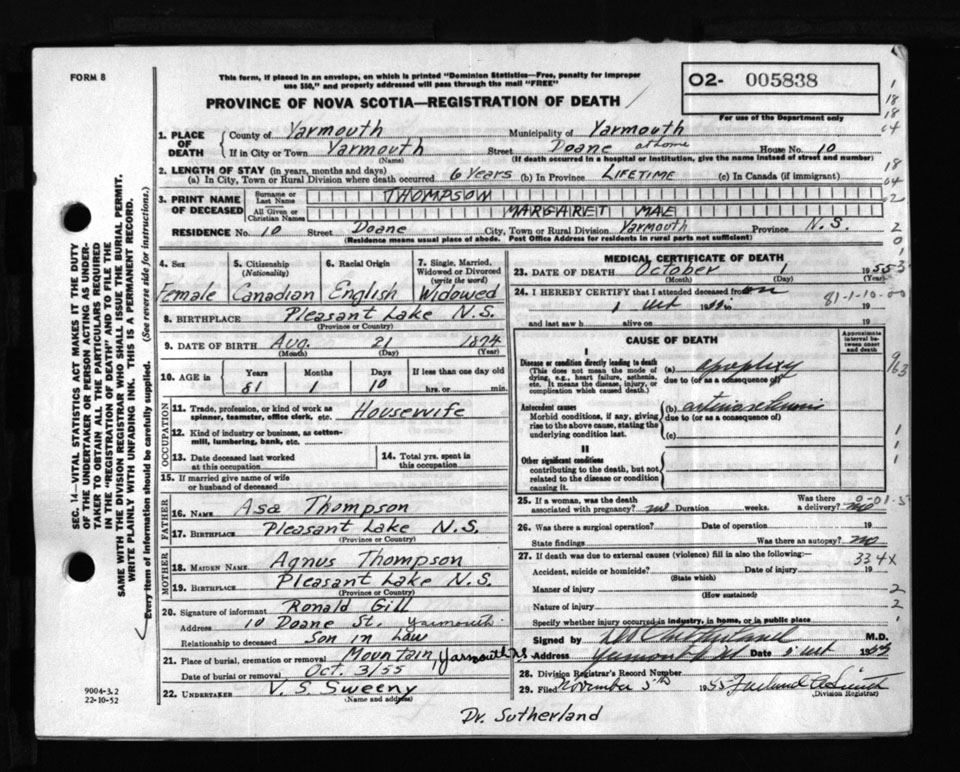 FORM 8
This form, if placed in an envelope, on which is printed "Dominion Statistics—Free, penalty for improper
use $50," and properly addressed will pass through the mail "FREE"
PROVINCE OF NOVA SCOTIA—REGISTRATION OF DEATH
02- 005838
For use of the Department only
1. PLACE OF DEATH
County of Yarmouth Municipality of Yarmouth
If in City or Town Yarmouth Street Doane at home House No. 10
(Name) (If death occurred in a hospital or institution, give the name instead of street and number)
2. LENGTH OF STAY (in years, months and days)
(a) In City, Town or Rural Division where death occurred 6 Years (b) In Province LIFETIME (c) In Canada (if immigrant)
3. PRINT NAME OF DECEASED
Surname or Last Name THOMPSON
All Given or Christian Names MARGARET MAE
RESIDENCE No. 10 Street Doane City, Town or Rural Division Yarmouth Province N.S.
(Residence means usual place of abode. Post Office Address for residents in rural parts not sufficient)
4. Sex
Female
5. Citizenship (Nationality)
Canadian
6. Racial Origin
English
7. Single, Married, Widowed or Divorced (write the word)
Widowed
8. BIRTHPLACE Pleasant Lake N.S.
(Province or Country)
9. DATE OF BIRTH Aug. 21 1874
(Month) (Day) (Year)
10. AGE in Years Months Days If less than one day old
81 1 10 hrs. or min.
OCCUPATION
11. Trade, profession, or kind of work as spinner, teamster, office clerk, etc. Housewife
12. Kind of industry or business, as cotton-mill, lumbering, bank, etc.
13. Date deceased last worked at this occupation
14. Total yrs. spent in this occupation
15. If married give name of wife or husband of deceased
FATHER
16. NAME Asa Thompson
17. BIRTHPLACE Pleasant Lake N.S.
(Province or Country)
MOTHER
18. MAIDEN NAME Agnus Thompson
19. BIRTHPLACE Pleasant Lake N.S.
(Province or Country)
20. Signature of informant Ronald Gill
Address 10 Doane St. Yarmouth
Relationship to deceased Son in Law
21. Place of burial, cremation or removal Mountain, Yarmouth NS
Date of burial or removal Oct. 3/55
22. UNDERTAKER V. S. Sweeny
(Name and address)
MEDICAL CERTIFICATE OF DEATH
23. DATE OF DEATH October 1 1955
(Month) (Day) (Year)
24. I HEREBY CERTIFY that I attended deceased from on
1 Oct 19
81-1-10-00
and last saw h alive on 19
CAUSE OF DEATH
Approximate interval between onset and death
I
Disease or condition directly leading to death
(This does not mean the mode of dying, e.g., heart failure, asthenia, etc. It means the disease, injury, or complication which caused death.)
(a) apoplexy
due to (or as a consequence of)
963
Antecedent causes
Morbid conditions, if any, giving rise to the above cause, stating the underlying condition last.
(b)
due to (or as a consequence of)
(c)
II
Other significant conditions
contributing to the death, but not related to the disease or condition causing it.
25. If a woman, was the death associated with pregnancy? no Duration weeks. Was there a delivery? no
26. Was there a surgical operation? Date of operation 19
State findings Was there an autopsy? no
27. If death was due to external causes (violence) fill in also the following:
334X
Accident, suicide or homicide? Date of injury 19
(State which)
Manner of injury
(How sustained)
Nature of injury
Specify whether injury occurred in industry, in home, or in public place
Signed by M.D.
Address Yarmouth Date 5 Oct 1955
28. Division Registrar's Record Number
29. Filed November 5th 1955
(Division Registrar)
Dr. Sutherland
9004-3.2
22-10-52
SEC. 14—VITAL STATISTICS ACT MAKES IT THE DUTY
OF THE UNDERTAKER OR PERSON ACTING AS UNDER-
TAKER TO OBTAIN ALL THE PARTICULARS REQUIRED
IN THE "REGISTRATION OF DEATH" AND TO FILE THE
SAME WITH THE DIVISION REGISTRAR WHO SHALL ISSUE THE BURIAL PERMIT.
WRITE PLAINLY WITH UNFADING INK. THIS IS A PERMANENT RECORD.
Every item of information should be carefully supplied. (See reverse side for instructions.)